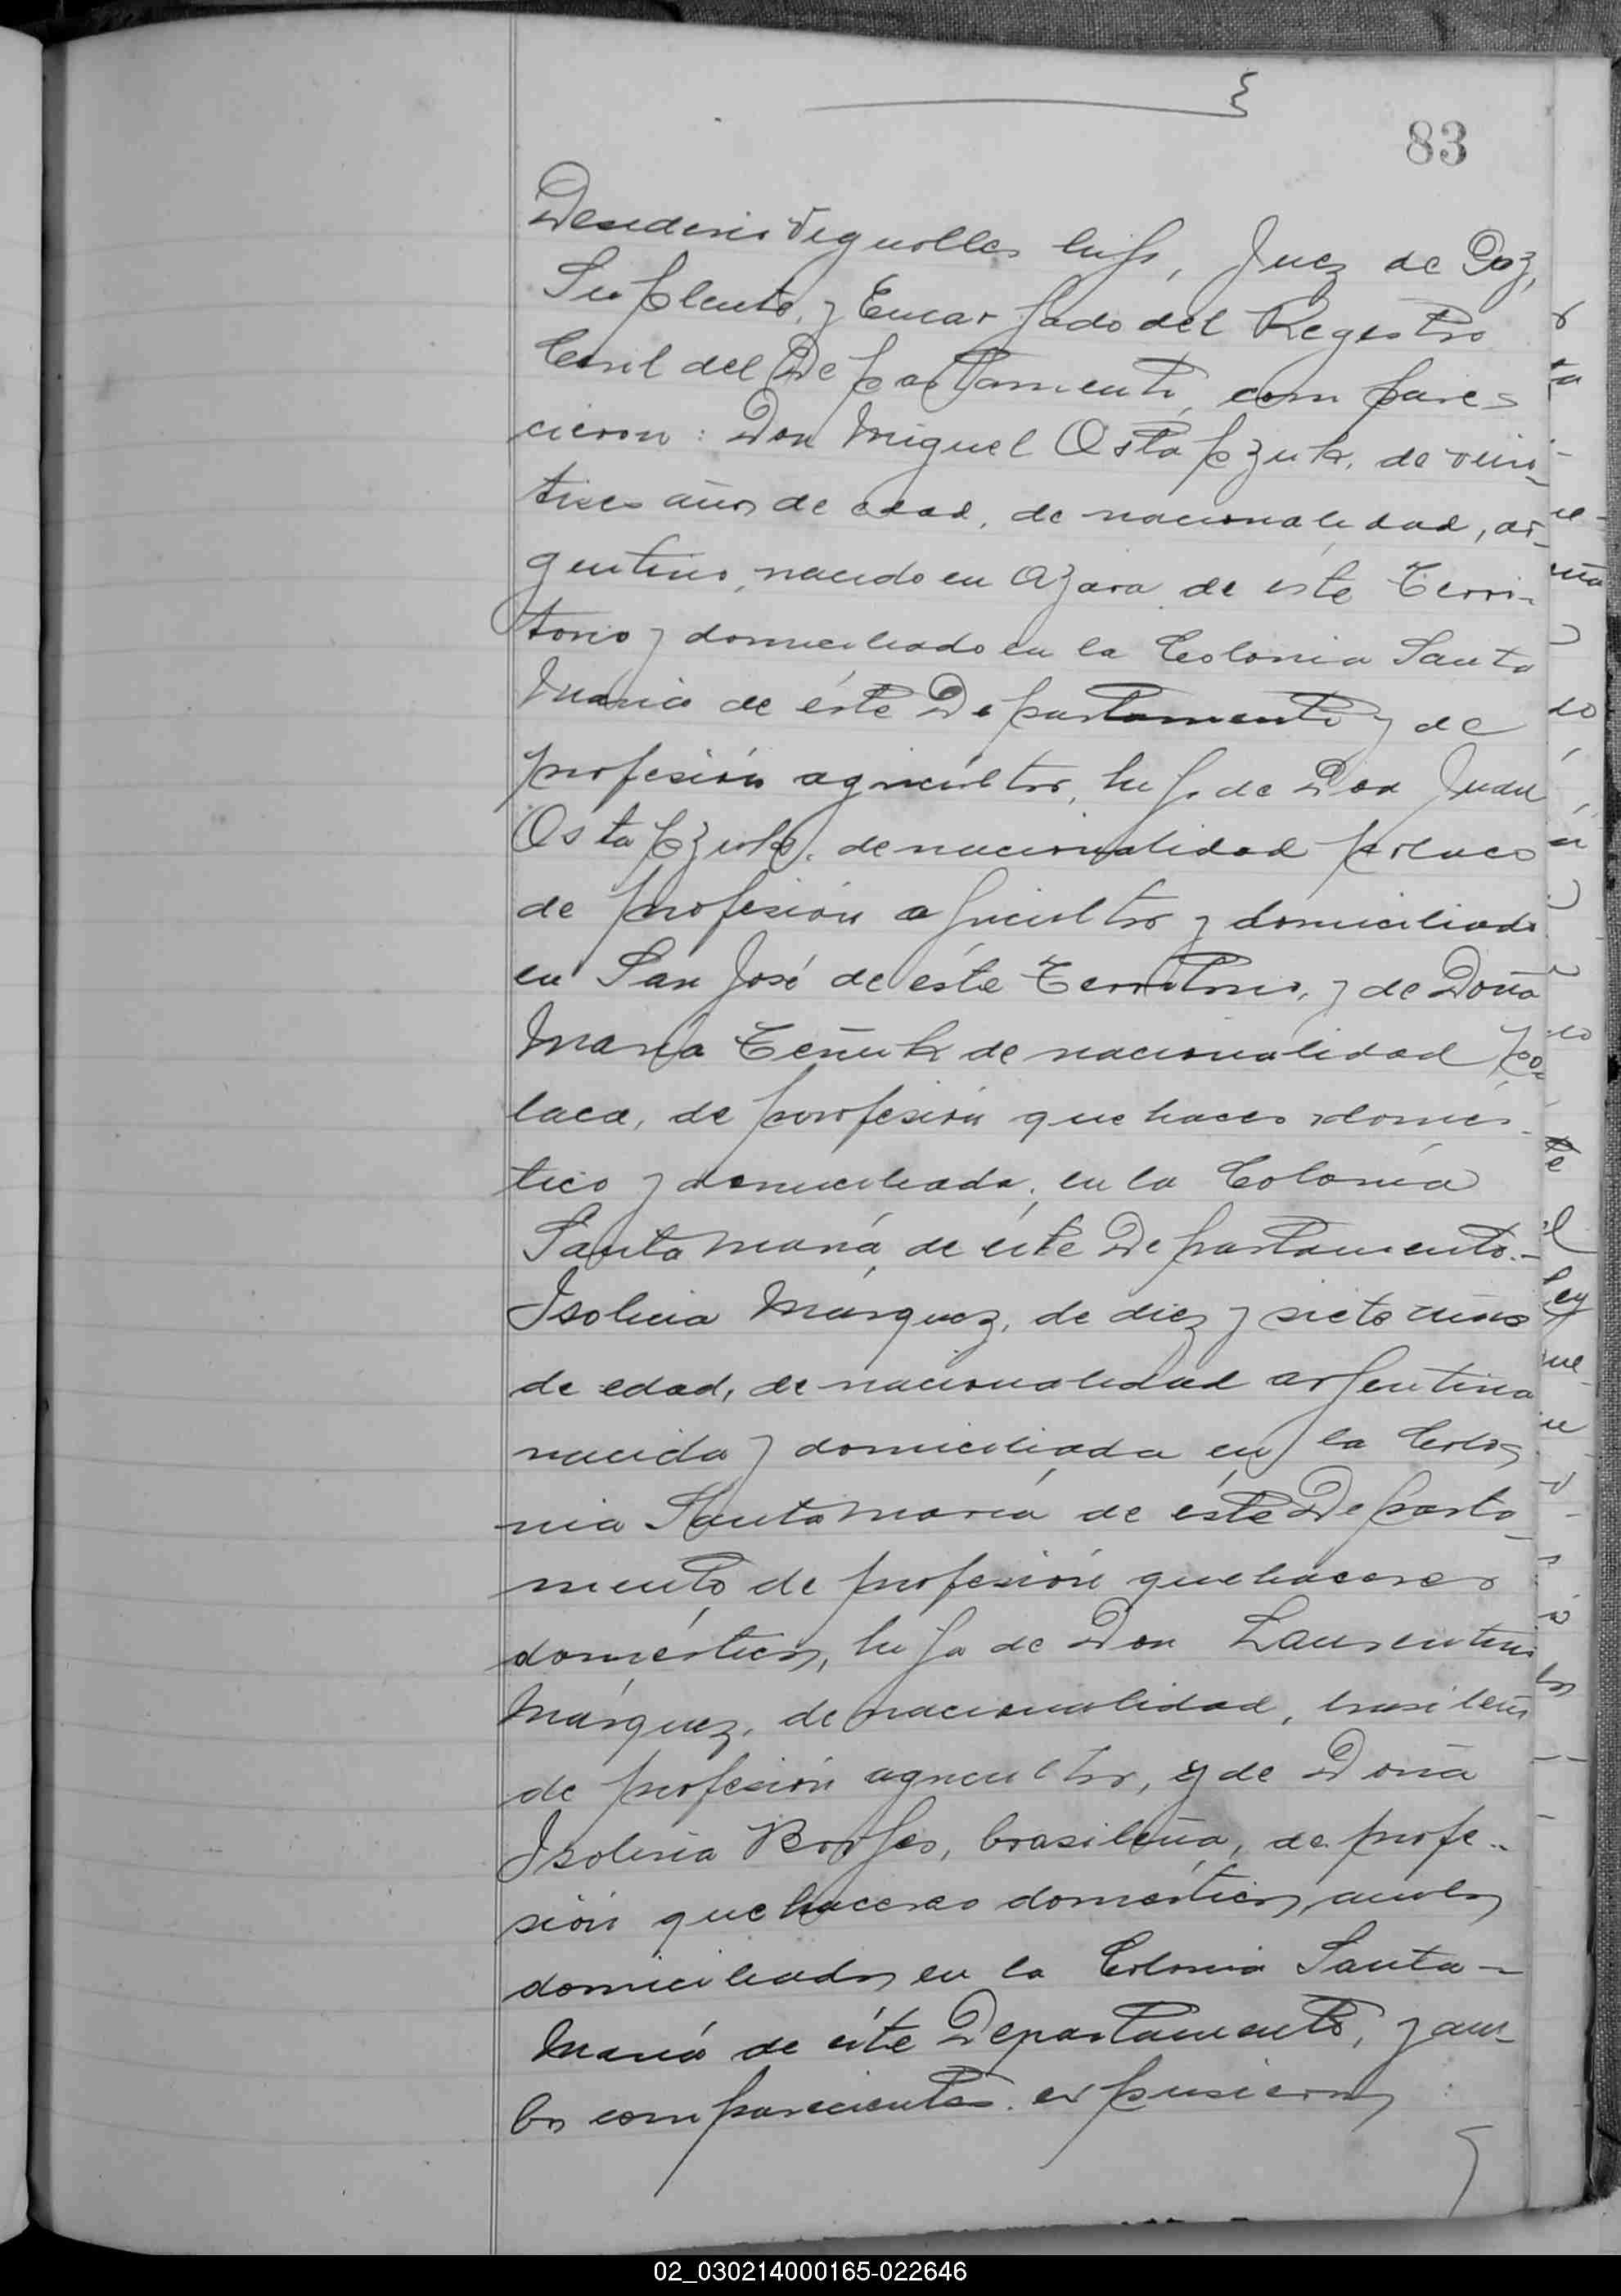 83
Desiderio Vignolles hijo, Juez de Paz,
Suplente, y Encargado del Registro
Civil del Departamento, compare-
cieron: Don Miguel Ostapczuk, de vein-
tires años de edad, de nacionalidad, ar-
gentino, nacido en Azara de este Terri-
torio y domiciliado en la Colonia Santa
María de éste Departamento y de
profesión agricultor, hijo de Don Juan
Ostapczuk, de nacionalidad polaco
de profesión agricultor y domiciliado
en San José de éste Territorio, y de Doña
María de nacionalidad po-
laca, de profesión quehaces domes-
tico y domiciliada, en la Colonia
Santa María, de éste Departamento.-
Isolina Márquez, de diez y siete años
de edad, de nacionalidad argentina
nacida y domiciliada en la Colo-
nia Santa María de éste Departa-
mento, de profesión quehaceres
domésticos, hija de Don Laurentino
Márquez, de nacionalidad, brasileño
de profesión agricultor, y de Doña
Isolina Borges, brasileña, de profe-
sión quehaceres domésticos, ambos
domiciliados en la Colonia Santa-
María de éste Departamento, y am-
bos comparecientes expusieron
02_030214000165-022646